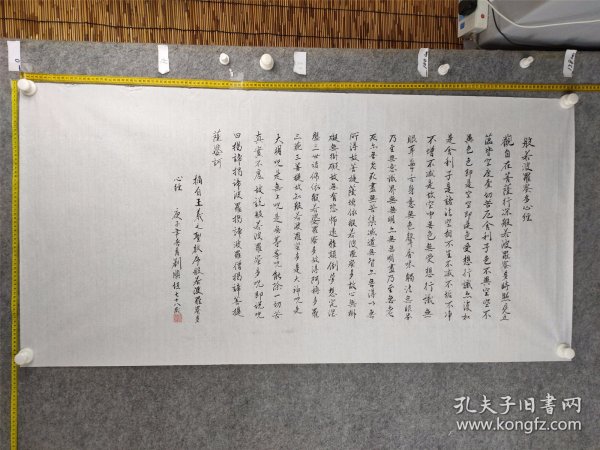 般若波羅蜜多心經
觀自在菩薩行深般若波羅蜜多時照見五
蘊皆空度一切苦厄舍利子色不異空空不
異色色即是空空即是色受想行識亦復如
是舍利子是諸法空相不生不滅不垢不淨
不增不減是故空中無色無受想行識無
眼耳鼻舌身意無色聲香味觸法無眼界
乃至無意識界無無明亦無無明盡乃至無老
死亦無老死盡無苦集滅道無智亦無得以無
所得故菩提薩埵依般若波羅蜜多故心無罣
礙無罣礙故無有恐怖遠離顛倒夢想究竟涅
槃三世諸佛依般若波羅蜜多故得阿耨多羅
三藐三菩提故知般若波羅蜜多是大神咒是
大明咒是無上咒是無等等咒能除一切苦
真實不虛故說般若波羅蜜多咒即說咒
曰揭諦揭諦波羅揭諦波羅僧揭諦菩提
薩婆訶
摘自王羲之聖教序般若波羅蜜多
心經 庚子年 劉 七十八歲
孔夫子旧书网
www.kongfz.com